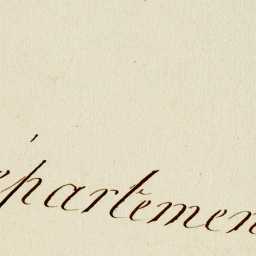 épartemen